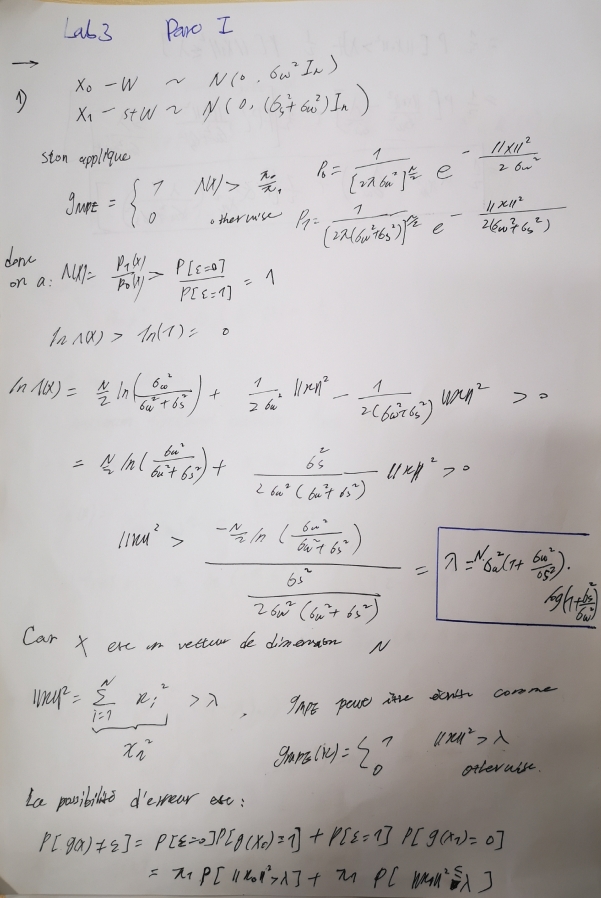 Lab 3 Part I
→
1) X₀ = W ~ N(0, σw² Iₙ)
X₁ = S+W ~ N(0, (σs²+σw²) Iₙ)
si on applique
g_MPE = { 1 Λ(x) > π₀/π₁
0 otherwise
P₀ = 1/[2πσw²]^(N/2) e^(- ||x||²/(2σw²))
P₁ = 1/[2π(σw²+σs²)]^(N/2) e^(- ||x||²/(2(σw²+σs²)))
donc
on a: Λ(x) = P₁(x)/P₀(x) > P[ε=0]/P[ε=1] = 1
ln Λ(x) > ln(1) = 0
ln Λ(x) = N/2 ln(σw²/(σw²+σs²)) + 1/(2σw²) ||x||² - 1/(2(σw²+σs²)) ||x||² > 0
= N/2 ln(σw²/(σw²+σs²)) + σs²/(2σw²(σw²+σs²)) ||x||² > 0
||x||² > (-N/2 ln(σw²/(σw²+σs²)))/(σs²/(2σw²(σw²+σs²))) = λ = Nσw²(1+ σw²/σs²).
log(1+σs²/σw²)
Car X est un vecteur de dimension N
||x||² = Σ_{i=1}^{N} xᵢ² > λ, g_MPE peut être écrite comme
χ₁²
g_MPE(x) = { 1 ||x||² > λ
0 otherwise.
La possibilité d'erreur est:
P[g(x)≠ε] = P[ε=0]P[g(X₀)=1] + P[ε=1] P[g(X₁)=0]
= π₁ P[||X₀||²>λ] + π₁ P[||X₁||² ≤ λ]